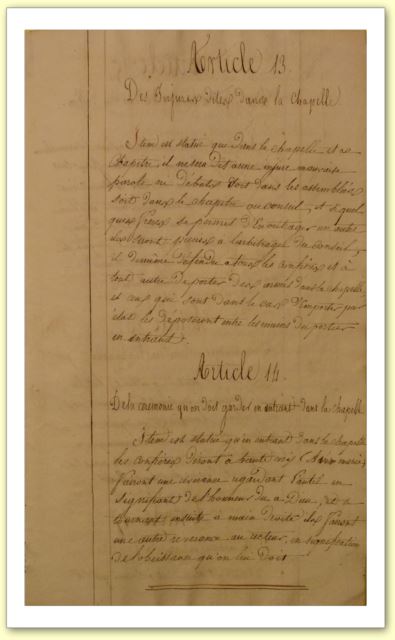 Article 13.
Des Injures dites dans la Chapelle
Item est statué que dans la chapelle et a
chapitre, il ne sera dit aune injure mauvaise
parole ni débats soit dans les assemblées
soit dans le chapitre ou conseil, et si quel
ques frères se permet d'en outrager un autre
ils seront à l'arbitrage du conseil,
il demeure défendu a tous les confrères et à
tout autre de porter des armes dans la chapelle
et ceux qui sont dans le cas d'emporter par
état les déposeront entre les mains du portier
en entrant.
Article 14.
De la ceremonie qu'on doit garder en entrant dans la chapelle
Item est statué qu'en entrant dans la chapelle
les confrères diront à haute voix (Ave maria)
fairont une reverence regardant l'autel en
signifiant de l'honneur du a Dieu, et se
tournant ensuite à main droite ils fairont
une autre reverence au recteur, en signification
de l'obeissance qu'on lui doit